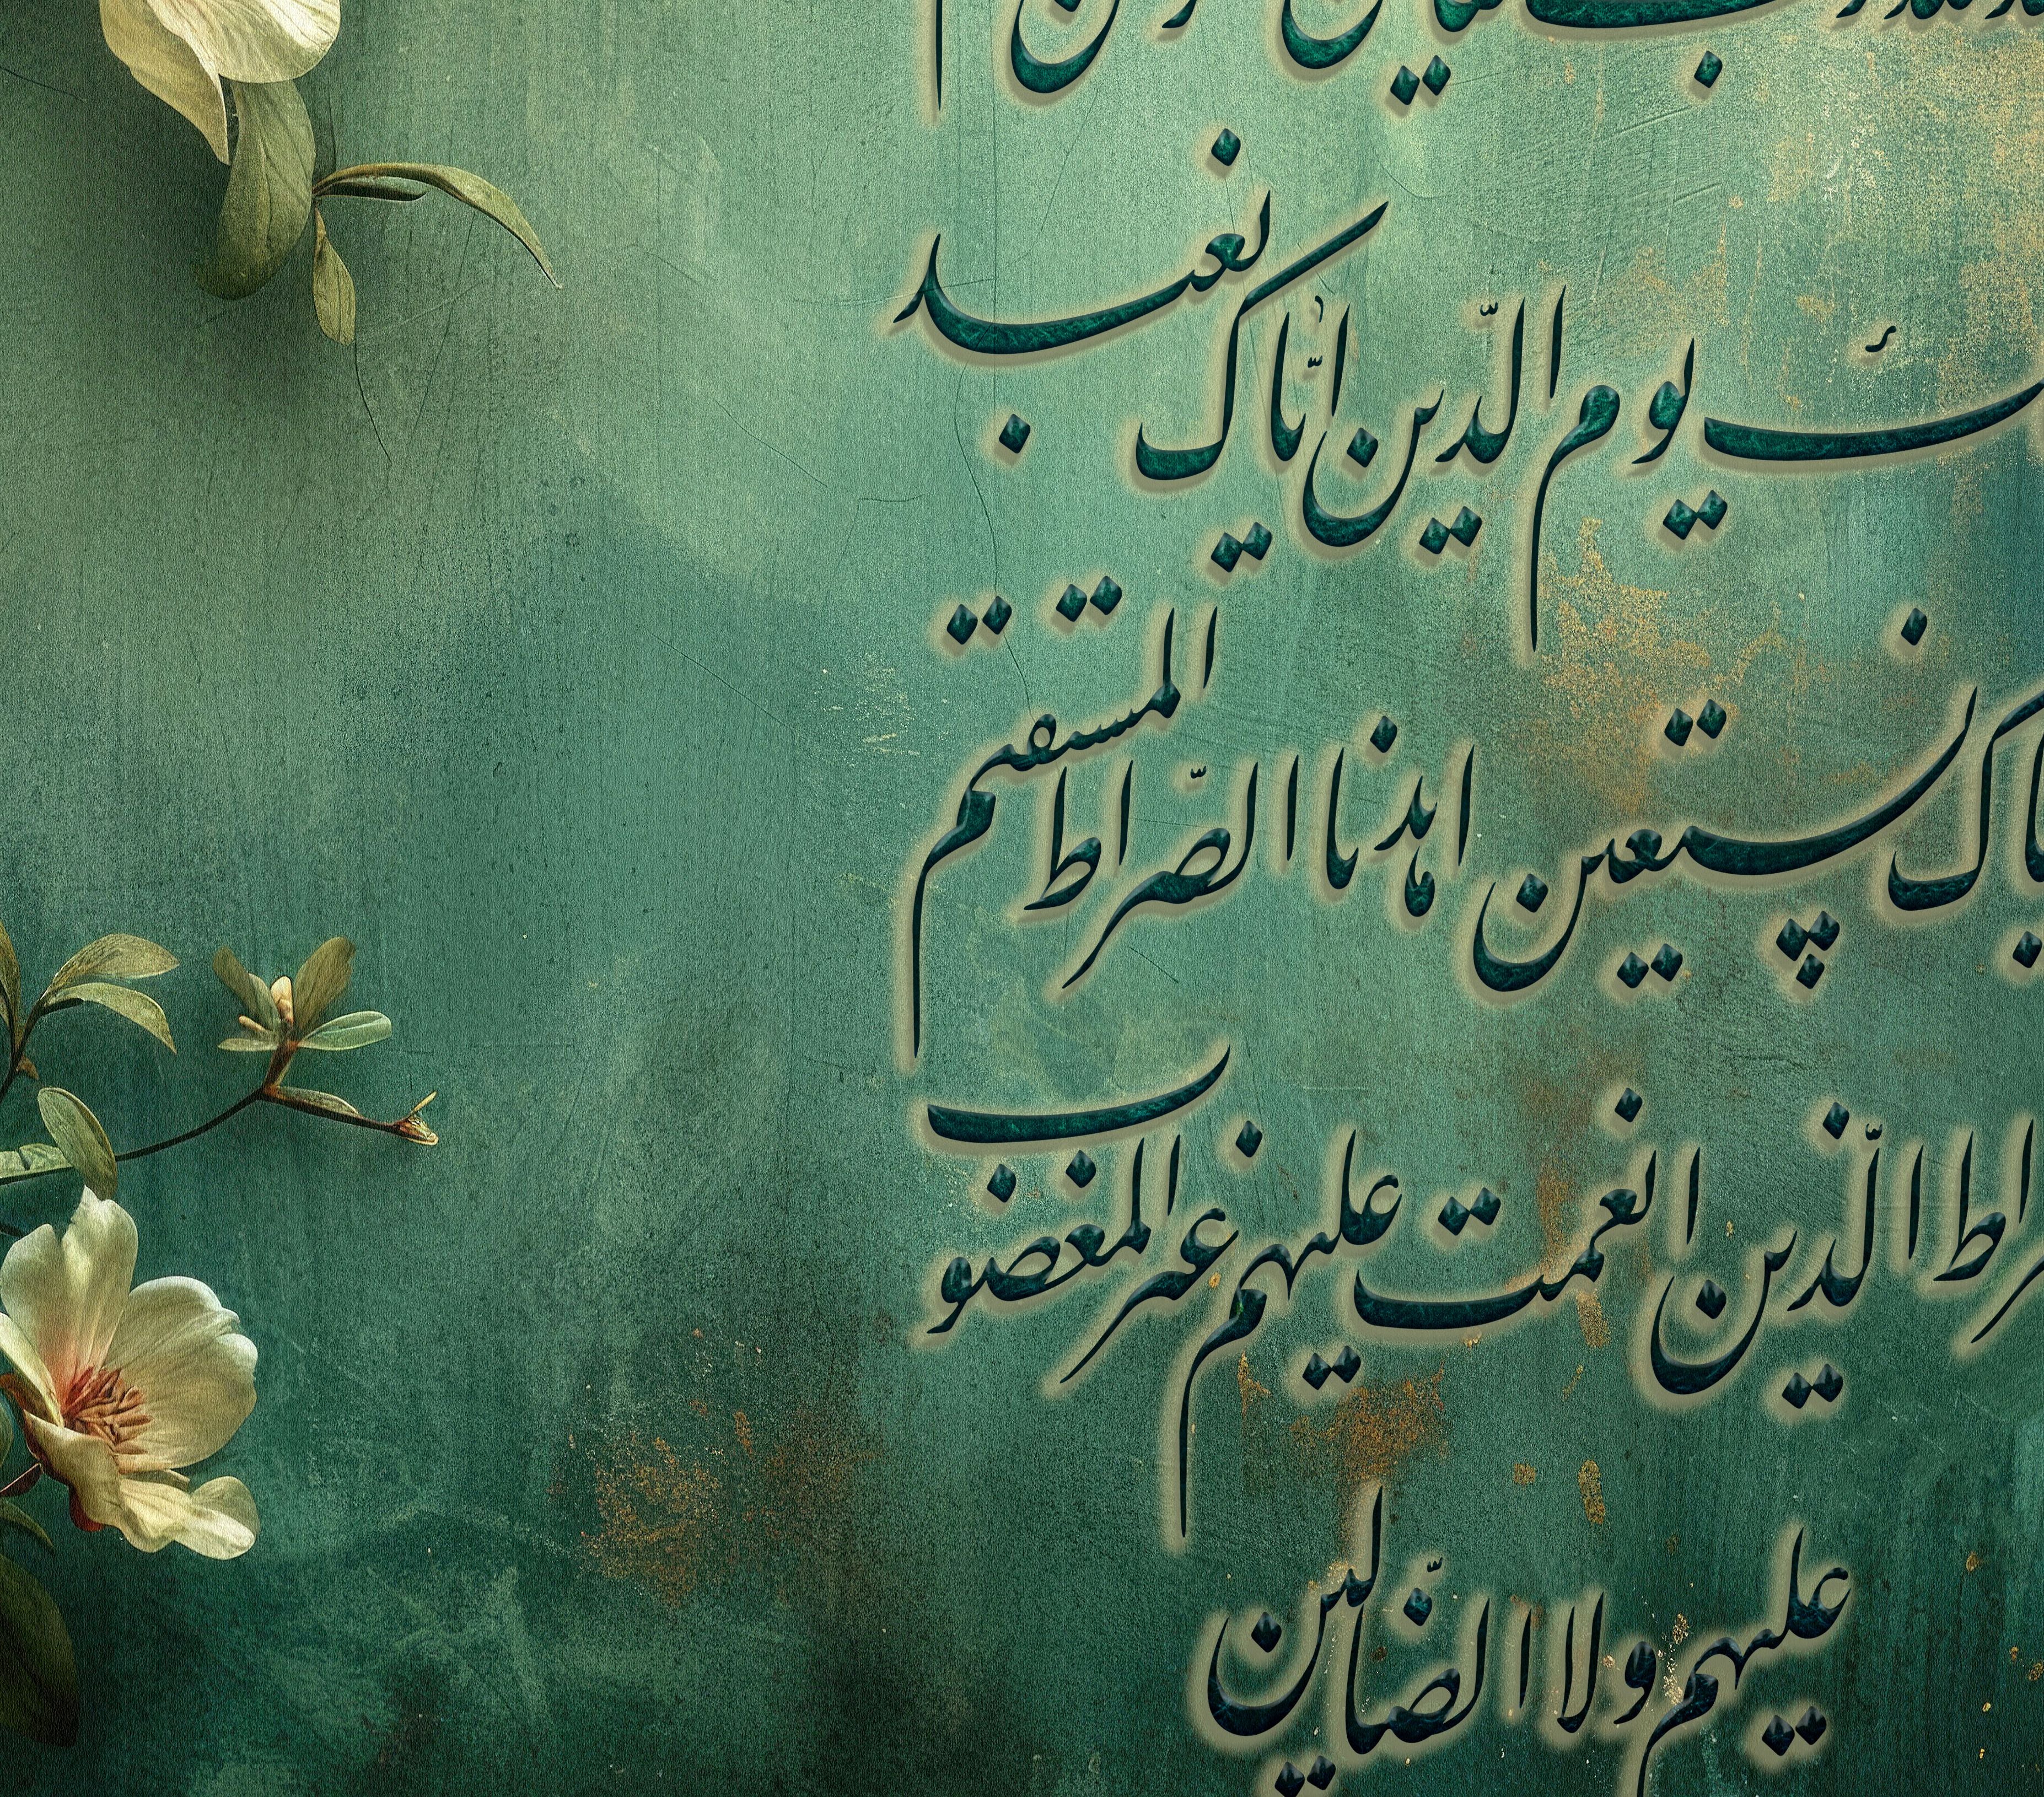 یوم الدّین ایّاک نعبد
یاک نستعین اهدنا الصّراط المستقیم
راط الّذین انعمت علیهم غیر المغضوب
علیهم ولا الضّالین